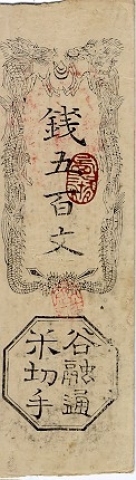 銭五百文
谷融通
米切手